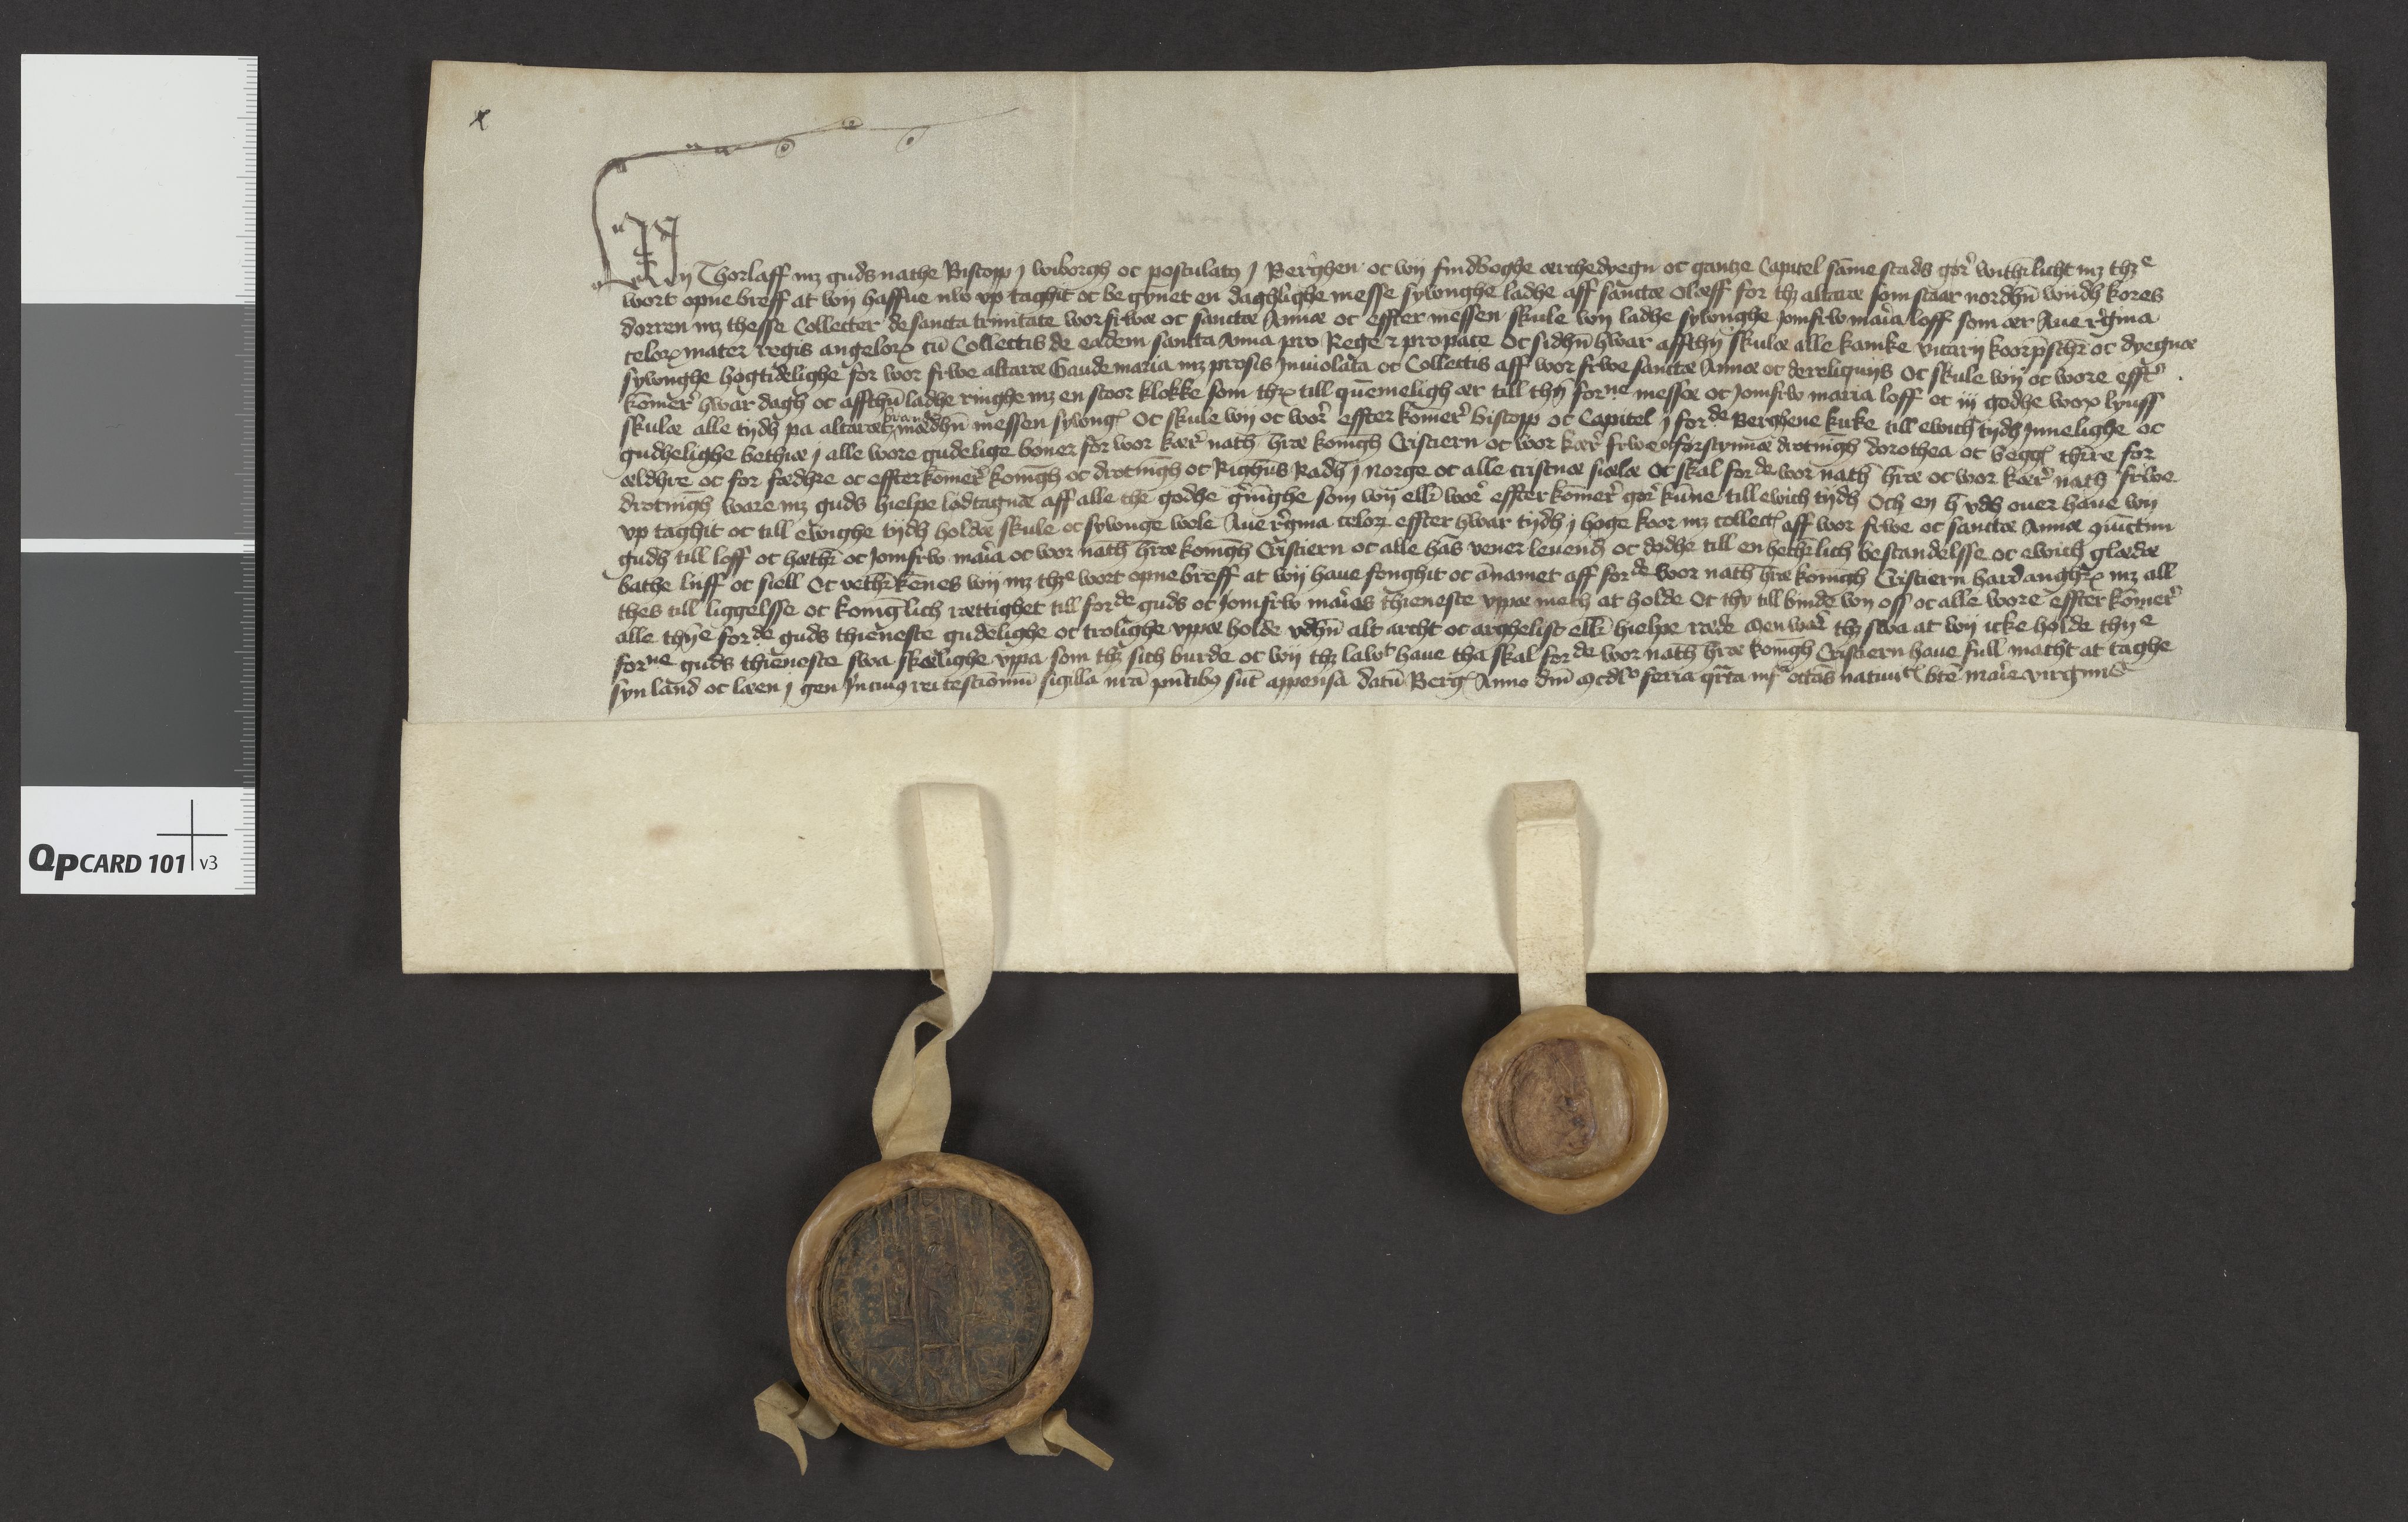 x
Wy Thorlaff mz guds nathe Biscopp j wiborgh oc postulatꝫ j Berghen oc wij findboghe ærchedyegn oc gantze Capitel sāme stads gør̓ with̄licht mz thꝫe
wort opne breff at wij haffue nw vp taghit oc be gynet en daghlighe messe sywnghe ladhe aff sanctæ Olæff for thꝫ altaræ som staar nordhn̄ wijdh kores
dorren mz thesse Collecter de sancta trinitate wor frwæ oc sanctæ Annæ oc effter messen skule wij ladhe sywnghe Jomfrw mar̓ia loff som ær Aue r̓gina
celorꝝ mater regis angelorꝝ cū Collectis de eadem sancta Anna pro Rege ⁊ pro pace Oc sidhn̄ hwar affthn̄ skulæ alle kanike vicarij koorp̄sth̄r oc dyegnæ
sywnghe høgtidelighe for wor frwe altaræ Gaude maria mz prosis Inuiolata oc Collectis aff wor frwe sanctæ Annæ oc de reliquijs Oc skule wij oc wore efft̓
kōmer̓ hwar dagh oc affthn̄ ladhe ringhe mz en stoor klokke som thꝝ till quēmeligh ær till thn̄ forne messæ oc Jomfrw maria loff oc iij godhe woxꝫ lyuss
skulæ alle tijdh pa altarætꝫ brande mædhn̄ messen sywngꝭ Oc skule wij oc woor̓ effter kōmer̓ biscopp oc Capitel j forde Berghene kirke till ewich tijdh Jnnelighe oc
gudhelighe bethiæ j alle wore gudelige bøner for woor kær̓ nath̄ h̄ræ konīgh Cristiern oc woor kær̓ frwe oc forstynnæ drotnīgh dorothea oc beggꝭ thīre for
ældhre oc for fædhre oc effterkōmer̓ konīgh oc drotnīgh oc Righns Radh j Norge oc alle cristnæ siælæ Oc skal forde woor nath̄ h̄ræ oc woor kær̓ nath̄ frwe
drotnīgh ware mz guds hielpe lodtagnæ aff alle the godhe gr̓nīghe som wij ell̄r woor̓ effter kōmer̓ gør̓ kūne till ewich tijdh Och en h̄ vdh ouer haue wij
vp taghit oc till ewighe tijdh holdæ skule oc sywnge wole Aue r̓gina celorꝫ effter hwar tijdh j høge koor mz collectꝭ aff woor frwe oc sanctæ Annæ
gudh till loff oc hæth̄r oc Jomfrw mar̓ia oc woor nath̄ h̄ræ konīgh Cristiern oc alle hās vener leuend oc dødhe till en hethrlich bestandelsse oc ewich glædæ
bathe liiff oc siell Oc veth̄r kēnes wij mz thꝫe wort opne breff at wij haue fonghit oc ānamet aff forde woor nath̄ h̄ræ konīgh Cristiern hardanghꝝ mz all
thes till liggelsse oc konīglich rættighet till forde guds oc Jomfrw mar̓ias thieneste vppæ meth at holde Oc thy till binde wij oss oc alle wore effter kōmer̓
alle thn̄e forde guds thieneste gudelighe oc trolighe vppæ holde vdhn̄ alt archt oc arghelist ell̄r hielpe ræde Men war̓ thꝫ swa at wij icke holde thn̄e
forne guds thieneste swa skælighe vppa som thꝫ sich burde oc wij thꝫ lawt haue tha skal forde woor nath̄ h̄ræ konīgh Cristiern haue full macht at taghe
syn land oc læen j gen Jn cuiꝫ rei testīoniū sigilla nr̄a pn̄tibꝫ sūt appensa datū Bergꝭ Anno dn̄i mcdlv feria qr̓ta infra octās natiuitꝭ bt̄e mar̓ie virginis
QpCARD 101 v3